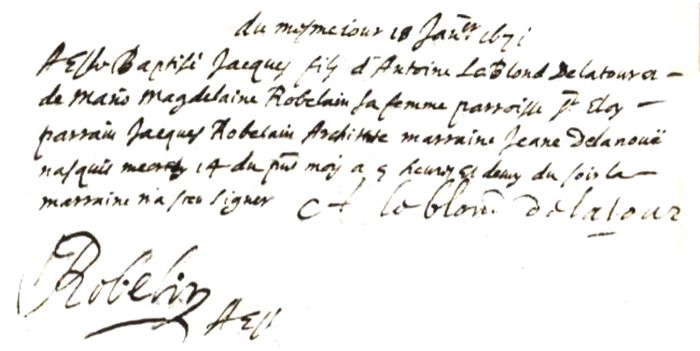 du mesme jour 18 Janer 1671
A Esté Baptisé Jacques fils d'Antoine Le Blond Delatour et
de Marie Magdelaine Robelain sa femme parroisse St Eloy
parrain Jacques Robelain Architecte marraine Jeane Delanouë
nasquit mecredy 14 du pnt mois a 5 heures et demy du soir la
marraine n'a sceu signer A leblond delatour
Robelin